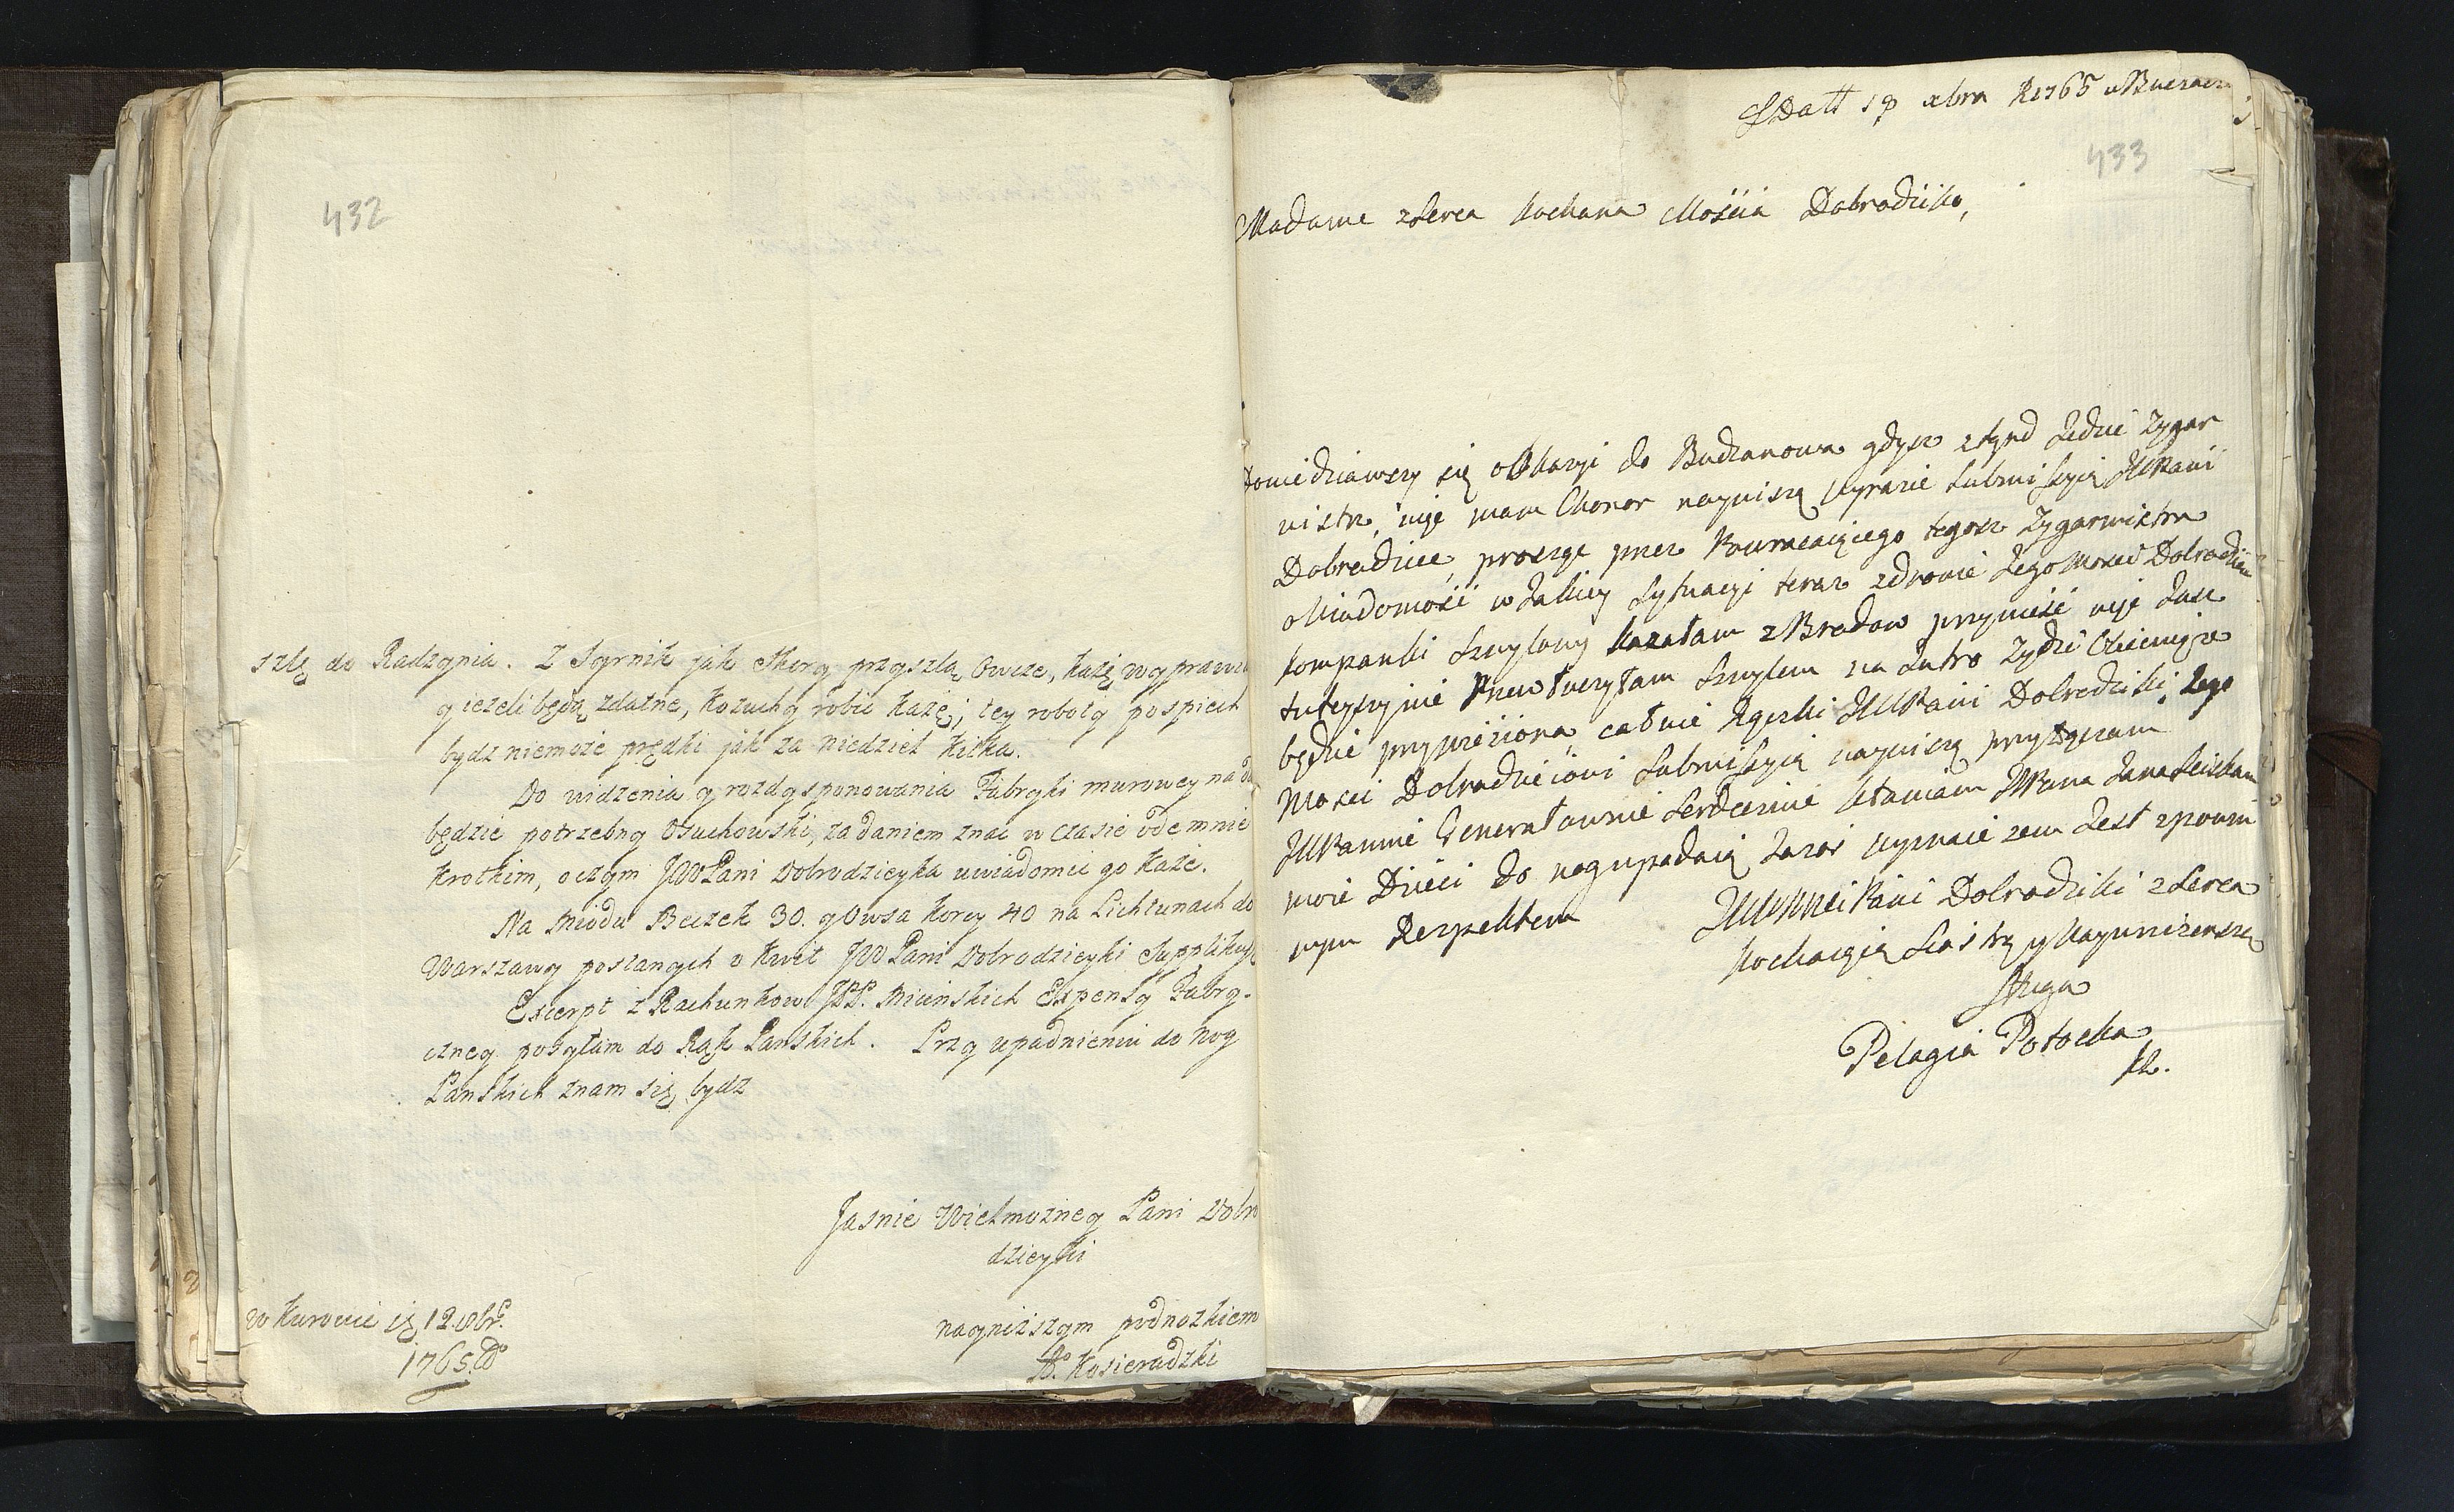 432
szlę do Radzynia. Z Syrnik jak skory przyszlą Owcze, każę wyprawi
y ieżeli będą zdatne, Kożuchy robić każę; tey roboty pospiech
bydz niemoże prędki jak za niedziel kilka.
Do widzenia y rozdysponowania Fabryki murowey na
będzie potrzebny Osuchowski, za daniem znać w czasie odemnie
krotkim, oczym JWPani Dobrodzieyka uwiadomić go każe.
Na Miodu Beczek 30. y Owsa korcy 40 na Lichtunach do
Warszawy posłanych o Kwit JWPani Dobrodzieyki Supplikuję
Excerpt z Rachunkow JPP. Micinskich Expensy Fabry-
czney posyłam do Rąk Panskich. Przy upadnieniu do Nog
Panskich znam się bydz
Jasnie Wielmozney Pani Dobro
dzieyki
nayniższym podnozkiem
Kosieradzki
w Kurowie 12. 8br.
1765.
Datt 18 xbra R 1765 w Buczacz
433
Madame z serca kochana Mościa Dobrodziko,
Dowiedziawszy się okkazyi do Budzanowa gdysz ztynd Jedzie Zygar
mistz, mam Chonor nayniszą wyrazić submissyią JWPani
Dobrodzice, proszę przez Powracaiącego tegosz Zygarmistra
o Wiadomość w Jakiey sytuacyi teraz zdrowie Jego Mosci Dobrodzieia
kompanki Szmylowy kazałam z Brodow przywieść Jusz
tuteyszymi Szmylem na Jutro Zydzi Obiecuią że
będzie przywieziona, całuie Rączki JWPani Dobrodziki, Jego
Mosci Dobrodzieiowi submissyią nayniszą przyłączam
JWPannie Generałownie serdecznie kłaniam JWPana Jana sciskam
moie Dzieci do nog upadaią Zaraz wyznaić zem Jest z powin
nym Respektem
JWWMci Pani Dobrodziki z serca
kochaiącą siostrą y nayunizensza
sługa
Pelagia Potocka